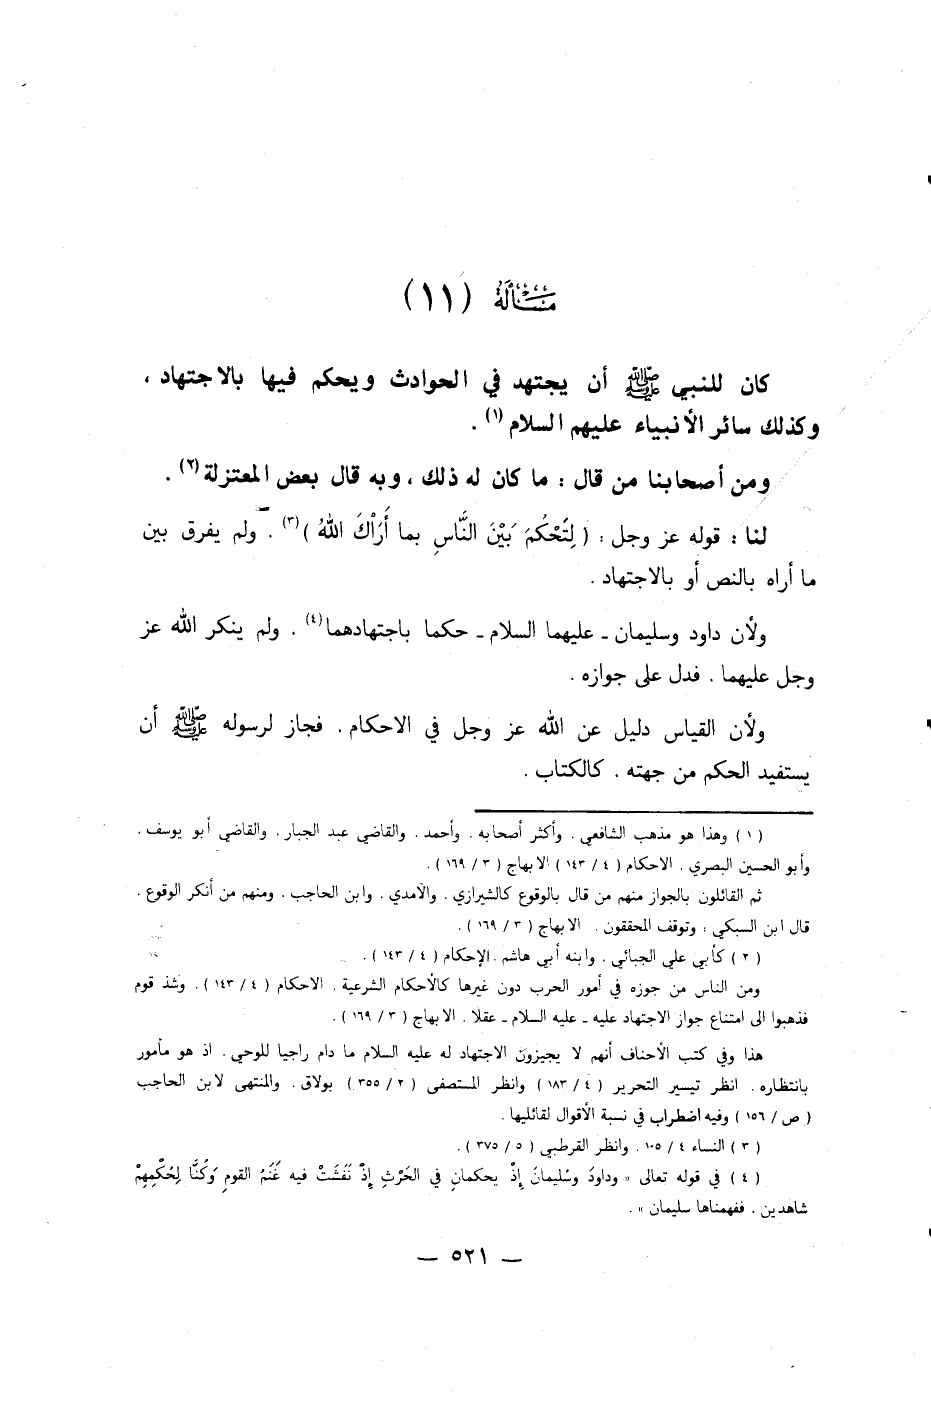 مَسْأَلَة (١١)
كان للنبي ﷺ أن يجتهد في الحوادث ويحكم فيها بالاجتهاد ،
وكذلك سائر الأنبياء عليهم السلام (١) .
ومن أصحابنا من قال : ما كان له ذلك ، وبه قال بعض المعتزلة (٢) .
لنا : قوله عز وجل : ( لِتَحْكُمَ بَيْنَ النَّاسِ بما أَرَاْكَ اللهُ ) (٣) . ولم يفرق بين
ما أراه بالنص أو بالاجتهاد .
ولأن داود وسليمان ـ عليهما السلام ـ حكما باجتهادهما (٤) . ولم ينكر الله عز
وجل عليهما . فدل على جوازه .
ولأن القياس دليل عن الله عز وجل في الاحكام . فجاز لرسوله ﷺ أن
يستفيد الحكم من جهته . كالكتاب .
( ١ ) وهذا هو مذهب الشافعي . وأكثر أصحابه . وأحمد . والقاضي عبد الجبار . والقاضي أبو يوسف .
وأبو الحسين البصري . الاحكام ( ٤ / ١٤٣ ) الابهاج ( ٣ / ١٦٩ ) .
ثم القائلون بالجواز منهم من قال بالوقوع كالشيرازي . والآمدي . وابن الحاجب . ومنهم من أنكر الوقوع .
قال ابن السبكي : وتوقف المحققون . الابهاج ( ٣ / ١٦٩ ) .
( ٢ ) كأبي علي الجبائي . وابنه أبي هاشم . الإحكام ( ٤ / ١٤٣ ) .
ومن الناس من جوزه في أمور الحرب دون غيرها كالأحكام الشرعية . الاحكام ( ٤ / ١٤٣ ) . وشذ قوم
فذهبوا الى امتناع جواز الاجتهاد عليه ـ عليه السلام ـ عقلا . الابهاج ( ٣ / ١٦٩ ) .
هذا وفي كتب الأحناف أنهم لا يجيزون الاجتهاد له عليه السلام ما دام راجيا للوحي . اذ هو مأمور
بانتظاره . انظر تيسير التحرير ( ٤ / ١٨٣ ) وانظر المستصفى ( ٢ / ٣٥٥ ) بولاق . والمنتهى لابن الحاجب
( ص / ١٥٦ ) وفيه اضطراب في نسبة الأقوال لقائليها .
( ٣ ) النساء ٤ / ١٠٥ . وانظر القرطبي ( ٥ / ٣٧٥ ) .
( ٤ ) في قوله تعالى « وداودَ وسُليمانَ إِذْ يحكمانِ في الحَرْثِ إِذْ نَفَشَتْ فيه غَنَمُ القومِ وَكُنَّا لِحُكْمِهِمْ
شاهدين . ففهمناها سليمان » .
— ٥٢١ —